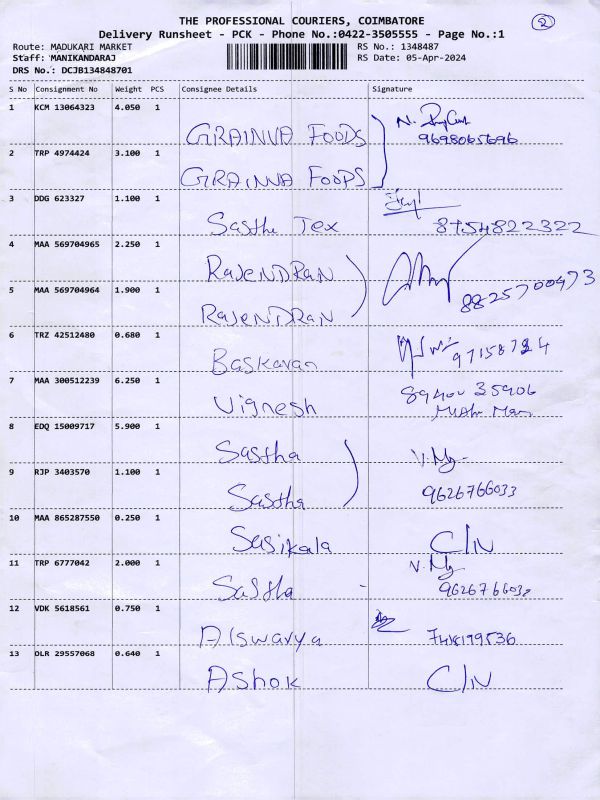 THE PROFESSIONAL COURIERS, COIMBATORE
2
Delivery Runsheet - PCK - Phone No.:0422-3505555 - Page No.:1
Route: MADUKARI MARKET
RS No.: 1348487
Staff: MANIKANDARAJ
RS Date: 05-Apr-2024
DRS No.: DCJB134848701
S No Consignment No Weight PCS Consignee Details Signature
1 KCM 13064323 4.050 1 GRAINVA FOODS N.
9698065696
2 TRP 4974424 3.100 1 GRAINNA FOODS
3 DDG 623327 1.100 1 Sastha Tex 8754822322
4 MAA 569704965 2.250 1 RAJENDRAN
5 MAA 569704964 1.900 1 RAJENDRAN 8825700473
6 TRZ 42512480 0.680 1 Baskaran
7 MAA 300512239 6.250 1 Vignesh
8 EDQ 15009717 5.900 1 Sastha V.
9 RJP 3403570 1.100 1 Sastha 9626766033
10 MAA 865287550 0.250 1 Sasikala C/N
11 TRP 6777042 2.000 1 Sastha V.
12 VDK 5618561 0.750 1 AIswarya
13 DLR 29557068 0.640 1 AShok C/N